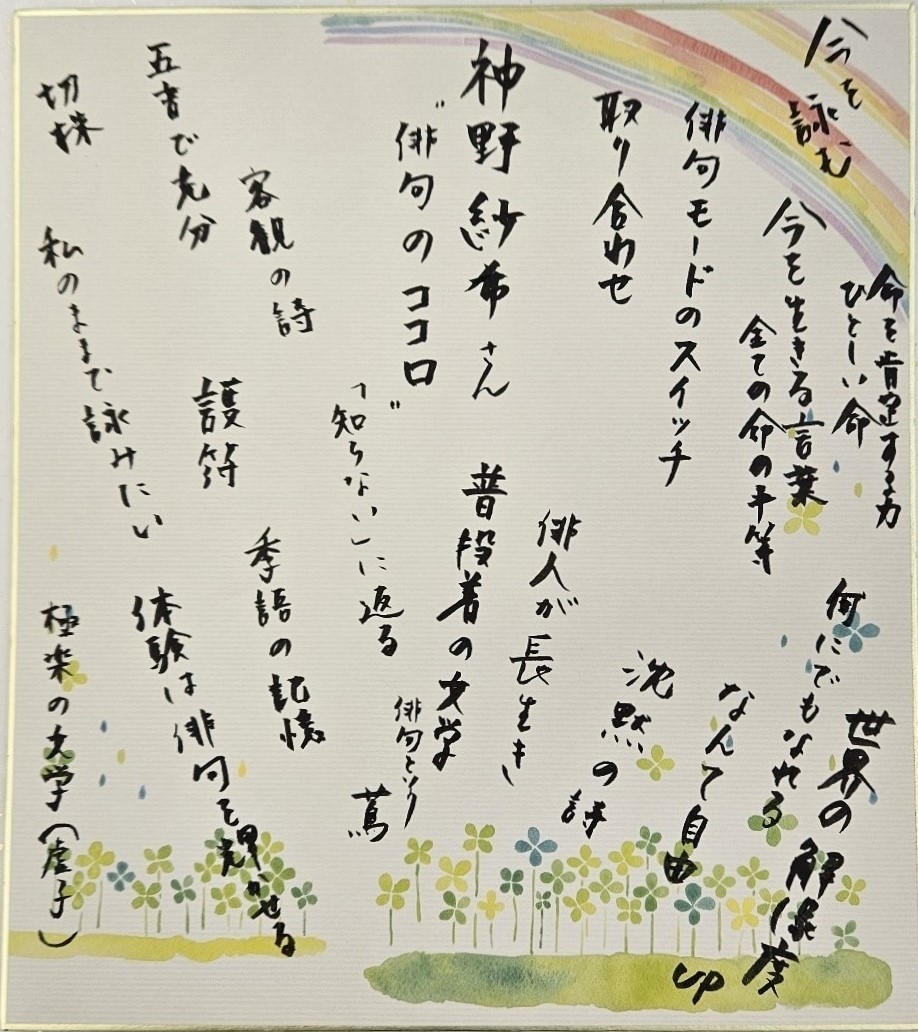 今を詠む
命を肯定する力
ひとしい命
今を生きる言葉
全ての命の平等
俳句モードのスイッチ
取り合わせ
何にでもなれる
世界の解像度
up
なんて自由
沈黙の詩
神野紗希さん
普段着の文学
俳人が長生き
"俳句のココロ"
「知らない」に返る
俳句という
蔦
客観の詩
季語の記憶
五音で充分
護符
体験は俳句を輝かせる
切株
私のままで詠みたい
極楽の文学(虚子)